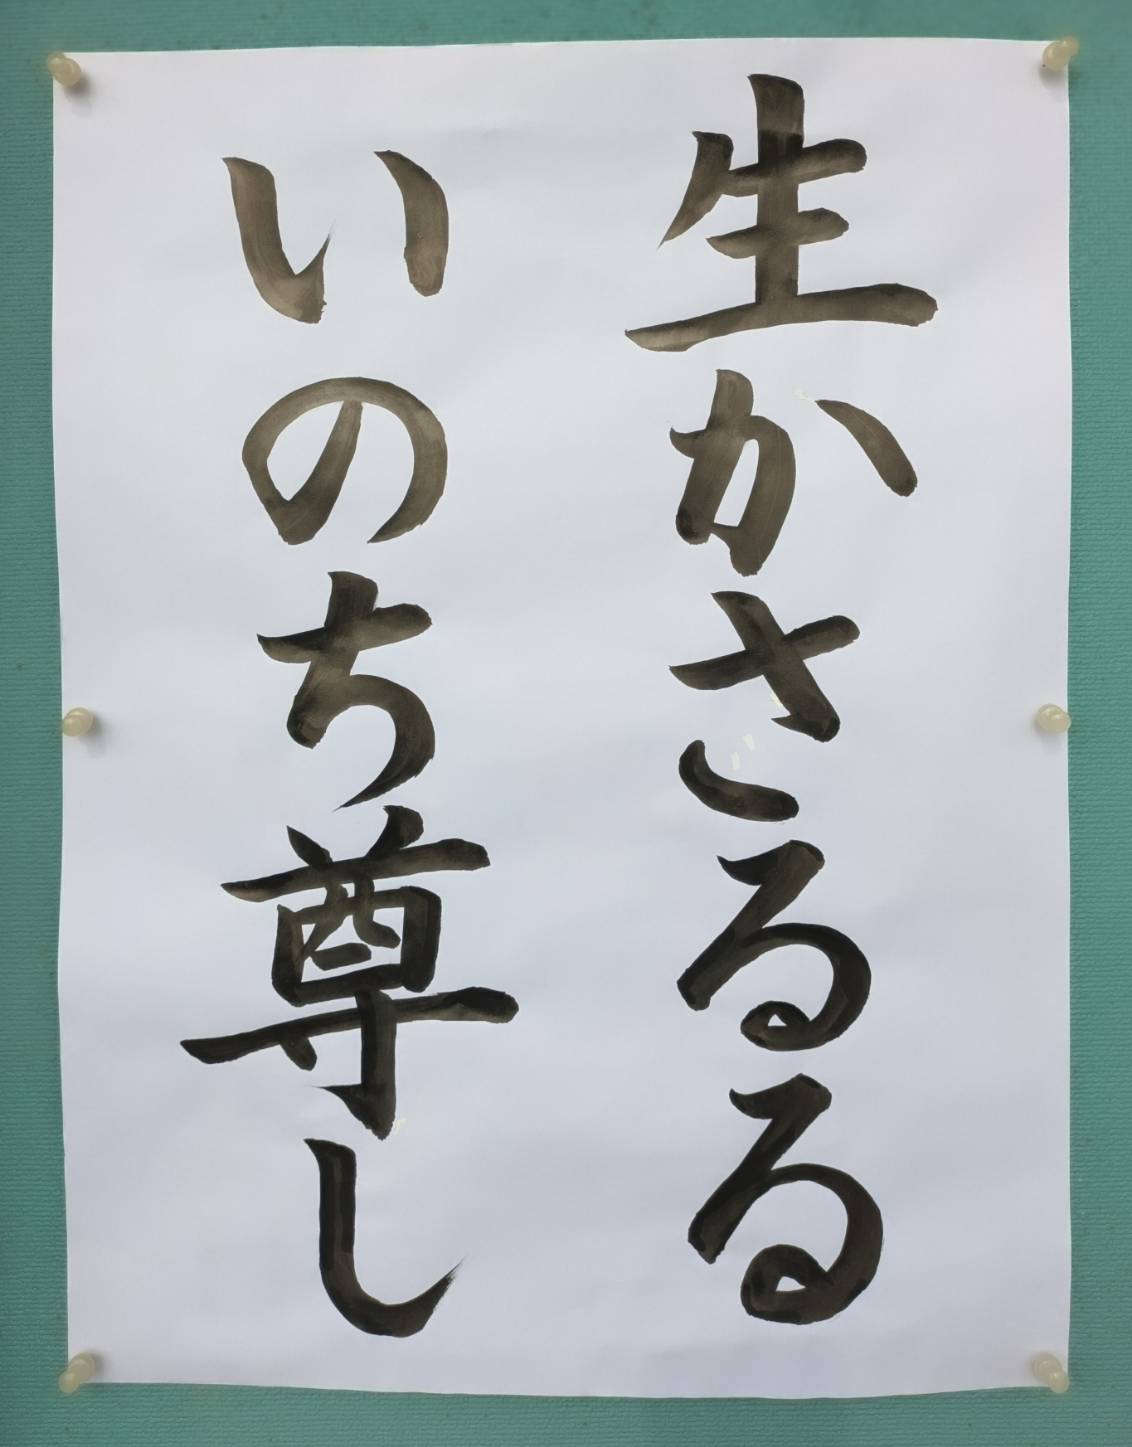 生かさるる
いのち尊し